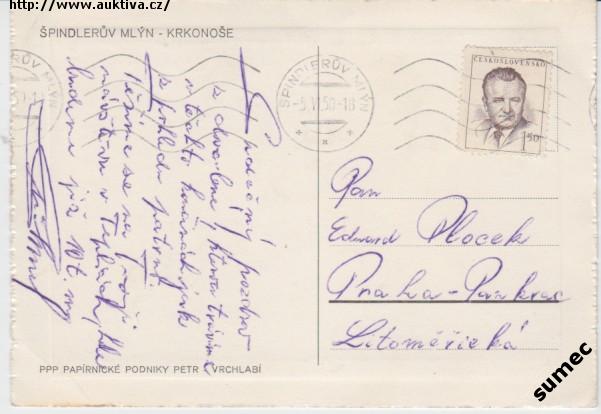 http://www.auktiva.cz/
ŠPINDLERŮV MLÝN - KRKONOŠE
ŠPINDLERŮV MLÝN
-5.VI.50-18
ČESKOSLOVENSKO
1.50
Srdečný pozdrav
s dovolené, kterou trávíme
v těchto horách jak
s pohledu patrno.
Těšíme se na
návštěvu v Teplicích, kde
budeme již
Pan
Edward Plocek
Praha-Pankrác
Litoměřická
PPP PAPÍRNICKÉ PODNIKY PETR VRCHLABÍ
sumec